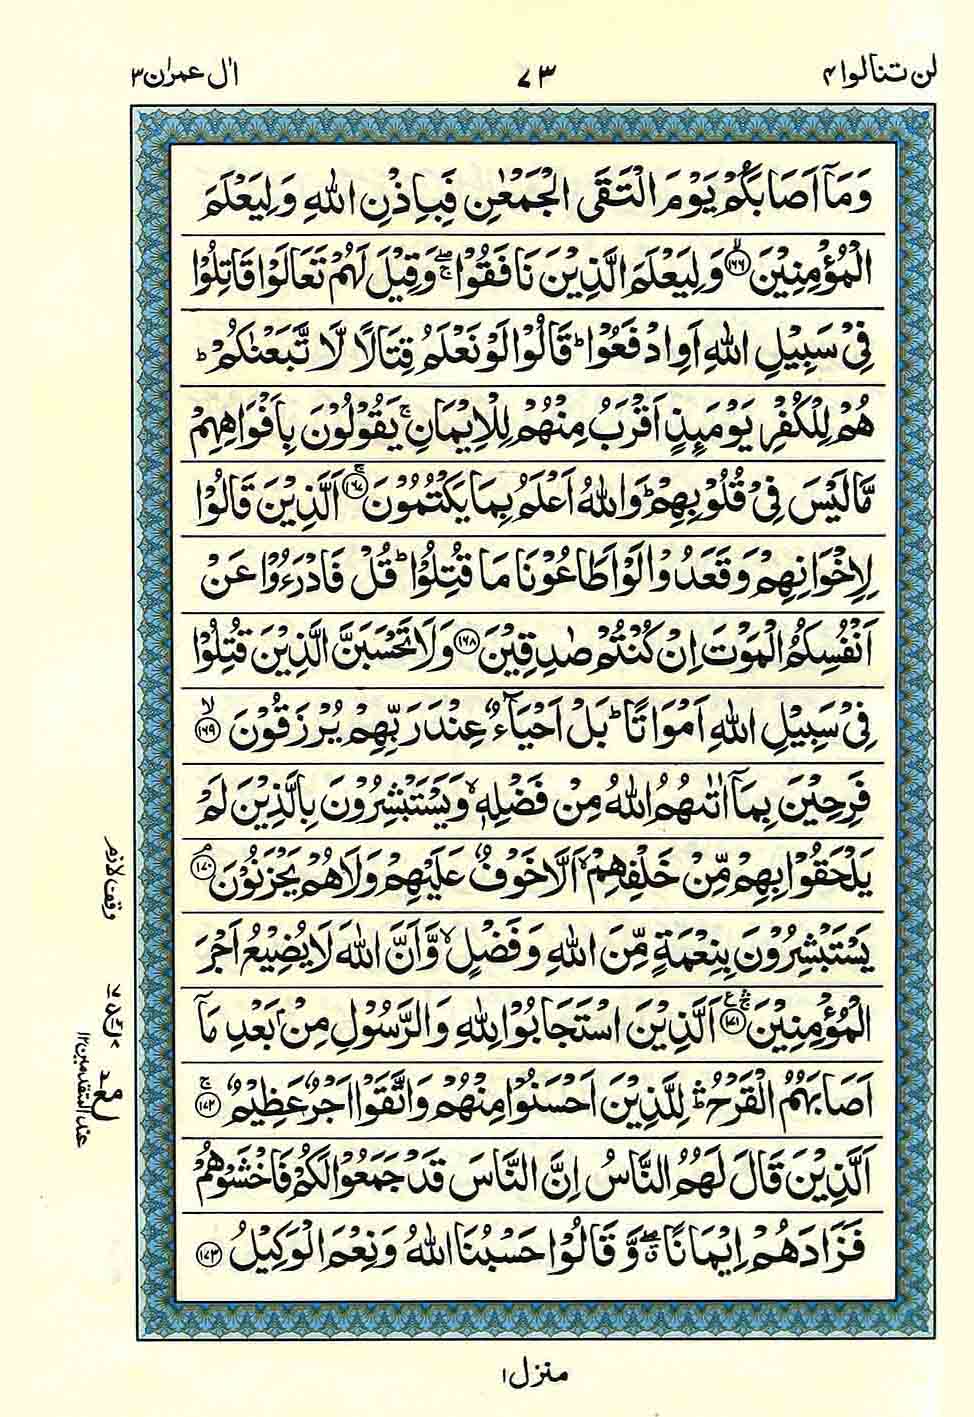 لن تنالوا ۴
۷۳
اٰل عمرٰن ۳
وَمَاۤ اَصَابَكُمْ يَوْمَ الْتَقَى الْجَمْعٰنِ فَبِاِذْنِ اللّٰهِ وَلِيَعْلَمَ
الْمُؤْمِنِيْنَ ۙ﴿۱۶۶﴾ وَلِيَعْلَمَ الَّذِيْنَ نَافَقُوْا ۖۚ وَقِيْلَ لَهُمْ تَعَالَوْا قَاتِلُوْا
فِيْ سَبِيْلِ اللّٰهِ اَوِ ادْفَعُوْا ؕ قَالُوْا لَوْ نَعْلَمُ قِتَالًا لَّا تَّبَعْنٰكُمْ ؕ
هُمْ لِلْكُفْرِ يَوْمَىِٕذٍ اَقْرَبُ مِنْهُمْ لِلْاِيْمَانِ ۚ يَقُوْلُوْنَ بِاَفْوَاهِهِمْ
مَّا لَيْسَ فِيْ قُلُوْبِهِمْ ؕ وَاللّٰهُ اَعْلَمُ بِمَا يَكْتُمُوْنَ ۚ﴿۱۶۷﴾ اَلَّذِيْنَ قَالُوْا
لِاِخْوَانِهِمْ وَقَعَدُوْا لَوْ اَطَاعُوْنَا مَا قُتِلُوْا ؕ قُلْ فَادْرَءُوْا عَنْ
اَنْفُسِكُمُ الْمَوْتَ اِنْ كُنْتُمْ صٰدِقِيْنَ ﴿۱۶۸﴾ وَلَا تَحْسَبَنَّ الَّذِيْنَ قُتِلُوْا
فِيْ سَبِيْلِ اللّٰهِ اَمْوَاتًا ؕ بَلْ اَحْيَآءٌ عِنْدَ رَبِّهِمْ يُرْزَقُوْنَ ۙ﴿۱۶۹﴾
فَرِحِيْنَ بِمَاۤ اٰتٰىهُمُ اللّٰهُ مِنْ فَضْلِهٖ ۙ وَيَسْتَبْشِرُوْنَ بِالَّذِيْنَ لَمْ
يَلْحَقُوْا بِهِمْ مِّنْ خَلْفِهِمْ ۙ اَلَّا خَوْفٌ عَلَيْهِمْ وَلَا هُمْ يَحْزَنُوْنَ ۘ﴿۱۷۰﴾
يَسْتَبْشِرُوْنَ بِنِعْمَةٍ مِّنَ اللّٰهِ وَفَضْلٍ ۙ وَّاَنَّ اللّٰهَ لَا يُضِيْعُ اَجْرَ
الْمُؤْمِنِيْنَ ۛۚ﴿۱۷۱﴾ اَلَّذِيْنَ اسْتَجَابُوْا لِلّٰهِ وَالرَّسُوْلِ مِنْۢ بَعْدِ مَاۤ
اَصَابَهُمُ الْقَرْحُ ۛؕ لِلَّذِيْنَ اَحْسَنُوْا مِنْهُمْ وَاتَّقَوْا اَجْرٌ عَظِيْمٌ ۚ﴿۱۷۲﴾
اَلَّذِيْنَ قَالَ لَهُمُ النَّاسُ اِنَّ النَّاسَ قَدْ جَمَعُوْا لَكُمْ فَاخْشَوْهُمْ
فَزَادَهُمْ اِيْمَانًا ۖۗ وَّقَالُوْا حَسْبُنَا اللّٰهُ وَنِعْمَ الْوَكِيْلُ ﴿۱۷۳﴾
وقف لازم
عند المتقدمين ۱۲
منزل ۱